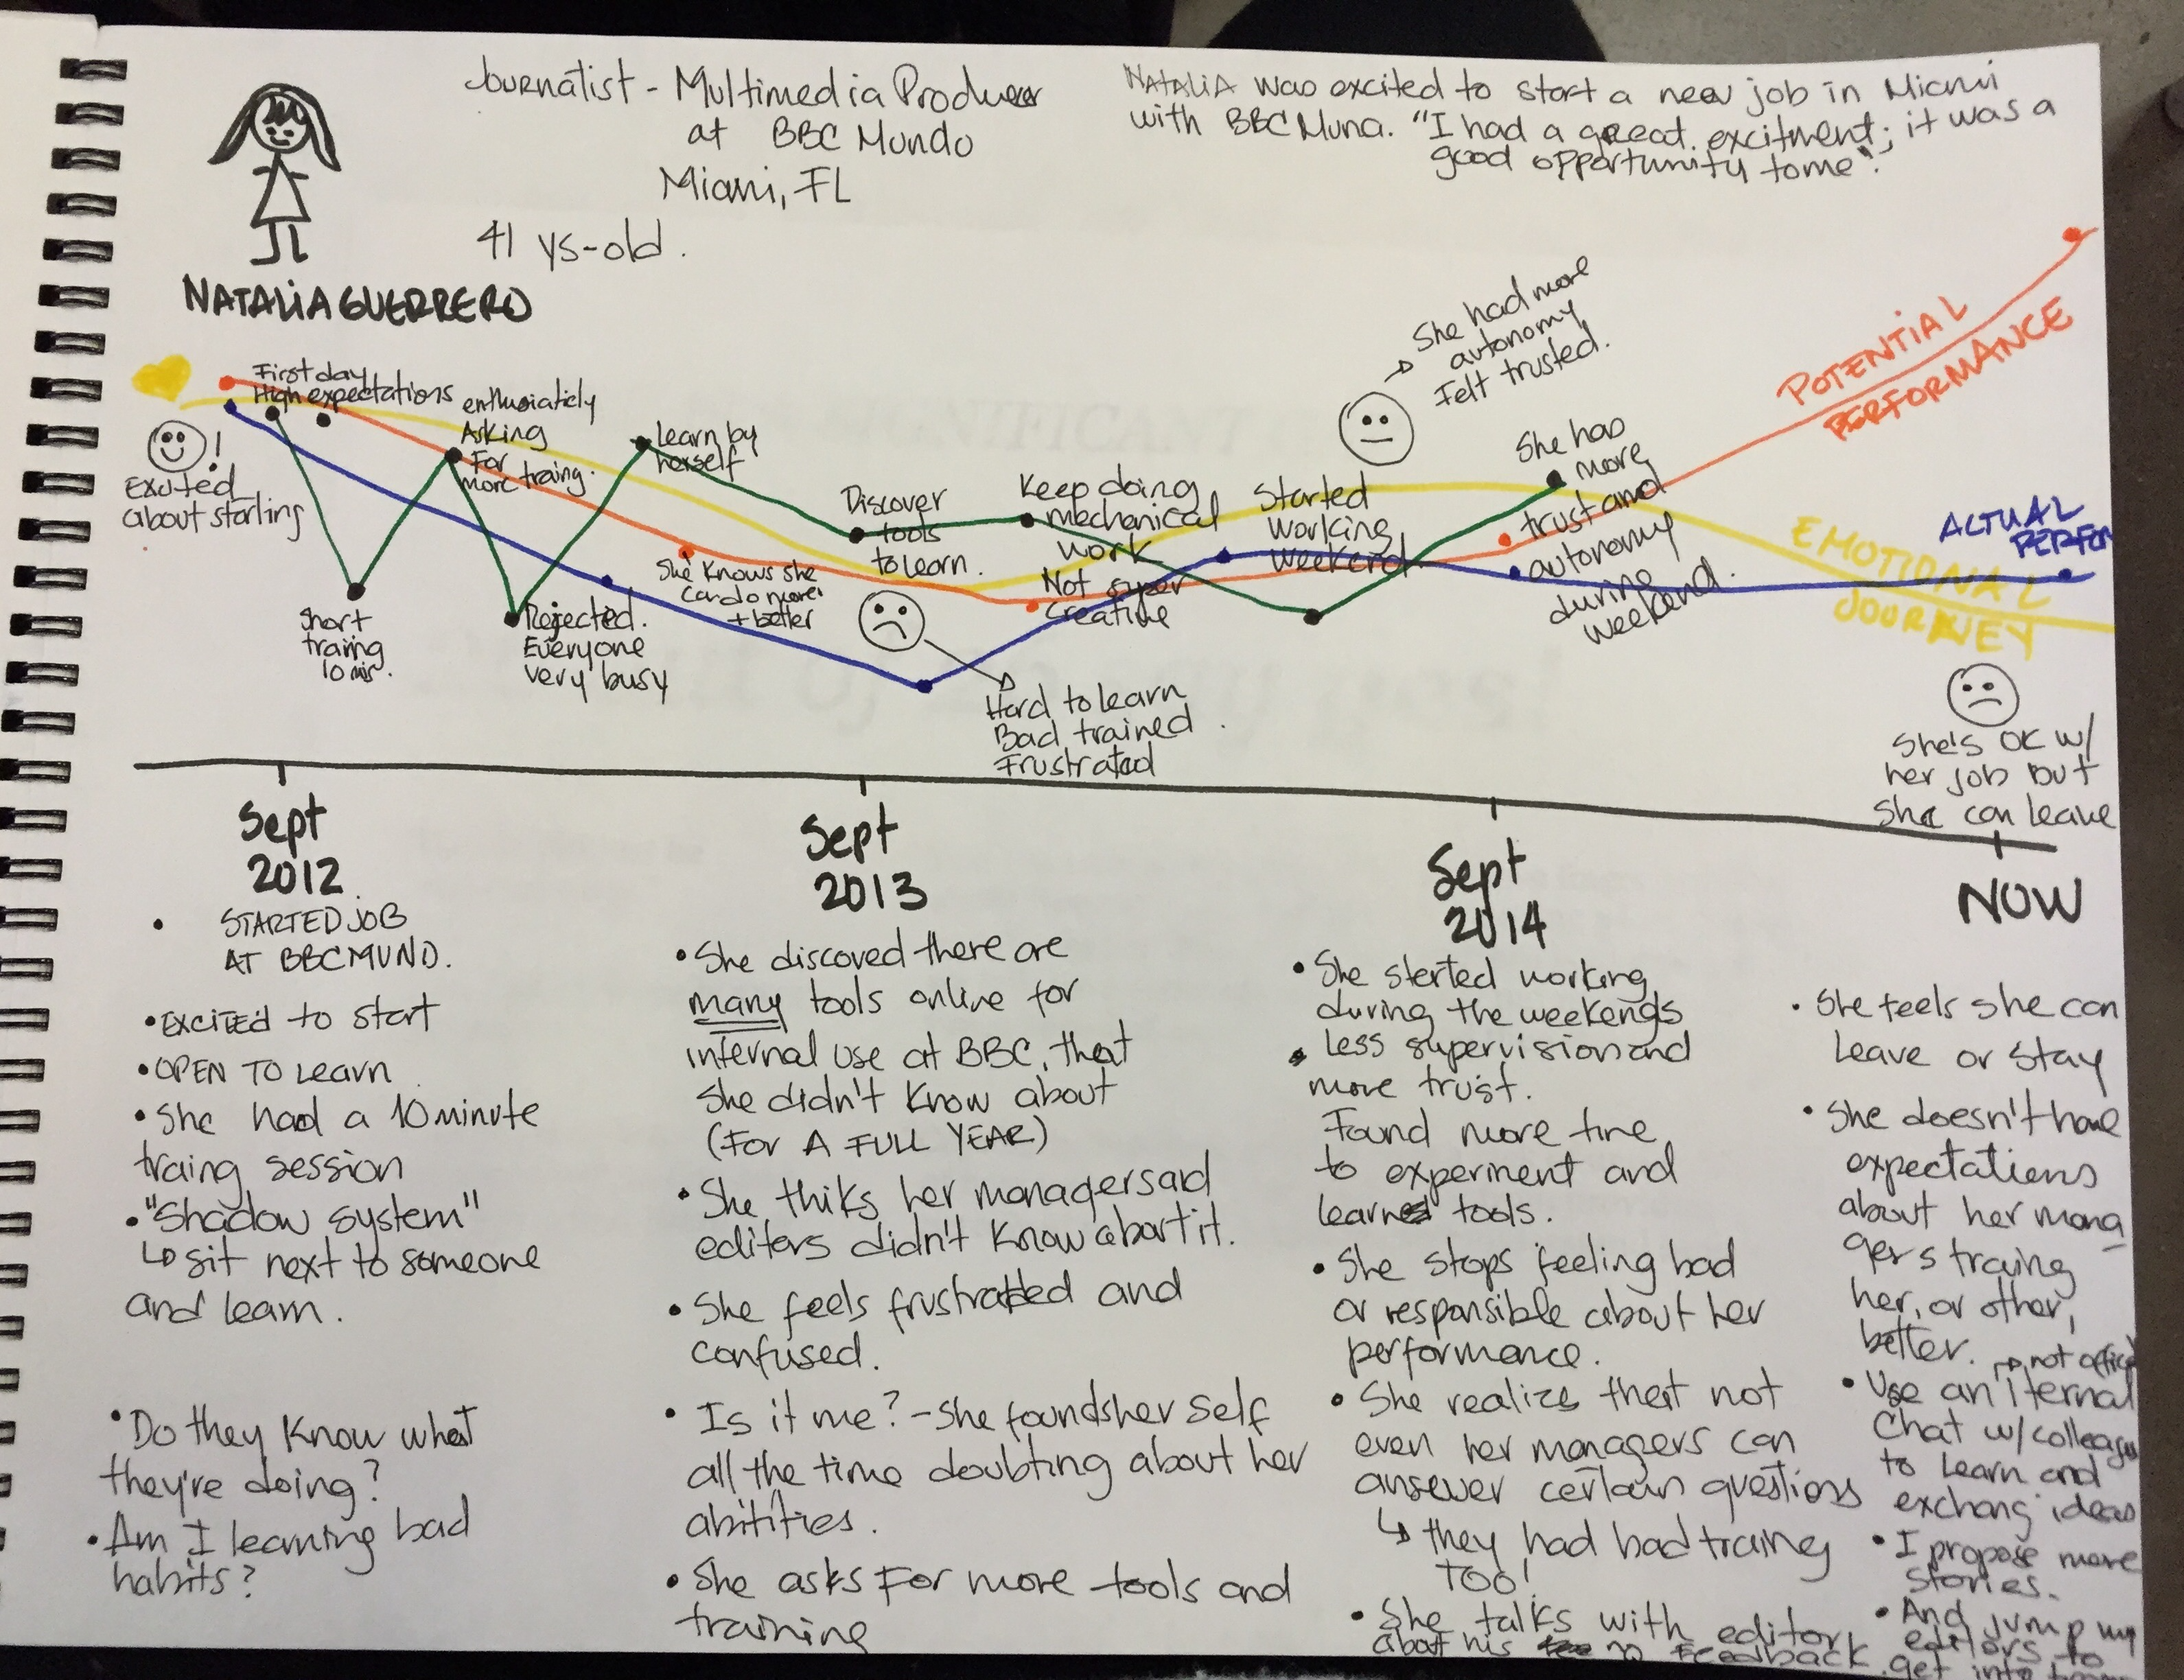 Journalist - Multimedia Producer
at BBC Mundo
Miami, FL
41 ys-old.
NATALIA GUERRERO
NATALIA was excited to start a new job in Miami
with BBC Muna. "I had a great excitment; it was a
good opportunity to me".
First day
High expectations
Excited
about starting
!
enthusiaticly
Asking
For
more traing.
short
traing
10 min.
Rejected.
Everyone
very busy
Learn by
herself
She knows she
can do more
+ better
Discover
tools
to learn.
Hard to learn
Bad trained
Frustrated
Keep doing
mechanical
work
Not super
creative
Started
working
weekend
She had more
autonomy
Felt trusted.
She has
more
trust and
autonomy
during
weekend.
POTENTIAL
PERFORMANCE
ACTUAL
PERFOR
EMOTIONAL
JOURNEY
She's OK w/
her job but
she can leave
Sept
2012
• STARTED JOB
AT BBCMUND.
• EXCITED to start
• OPEN TO Learn
• She had a 10 minute
traing session
• "Shadow system"
↳ sit next to someone
and learn.
• Do they know what
they're doing?
• Am I learning bad
habits?
Sept
2013
• She discoved there are
many tools online for
internal use at BBC, that
she didn't know about
(FOR A FULL YEAR)
• She thiks her managers and
editors didn't know about it.
• She feels frustrated and
confused.
• Is it me? - she founds her self
all the time doubting about her
abitities.
• She asks For more tools and
training
Sept
2014
• She sterted working
during the weekends
• Less supervision and
more trust.
Found more time
to experiment and
learned tools.
• She stops feeling bad
or responsible about her
performance.
• She realizes that not
even her managers can
answer certain questions
↳ they had bad traing
Too!
• She talks with editor
about his no Feedback
NOW
• She feels she can
Leave or stay
• She doesn't have
expectations
about her mana
gers traing
her, or other,
better.
→ not offic
• Use an iternal
Chat w/colleags
to Learn and
exchang ideas
• I propose more
stories.
• And jump my
editors to
get into